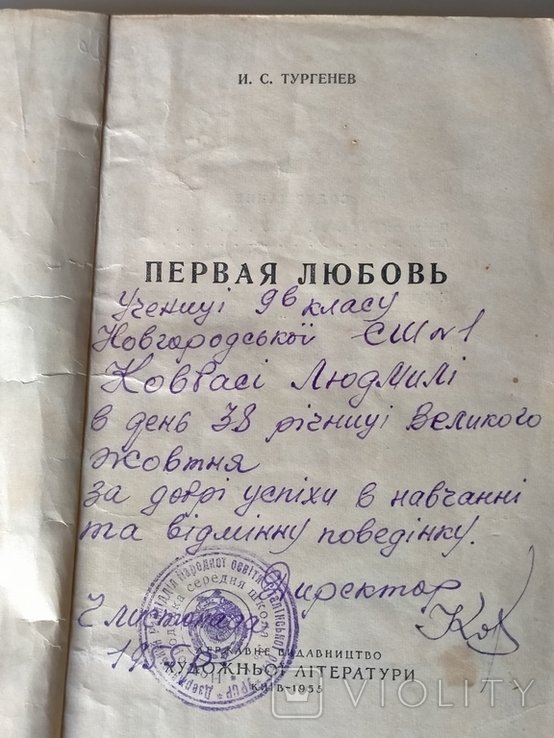 И. С. ТУРГЕНЕВ
ПЕРВАЯ ЛЮБОВЬ
Учениці 9в класу
Новгородської СШ №1
Ковтасі Людмилі
в день 38 річниці Великого
жовтня
за добрі успіхи в навчанні
та відмінну поведінку.
Директор
7 листопада
1955
ДЕРЖАВНЕ ВИДАВНИЦТВО
ХУДОЖНЬОЇ ЛІТЕРАТУРИ
КИЇВ—1955
народної освіти
середня школа
VIOLITY